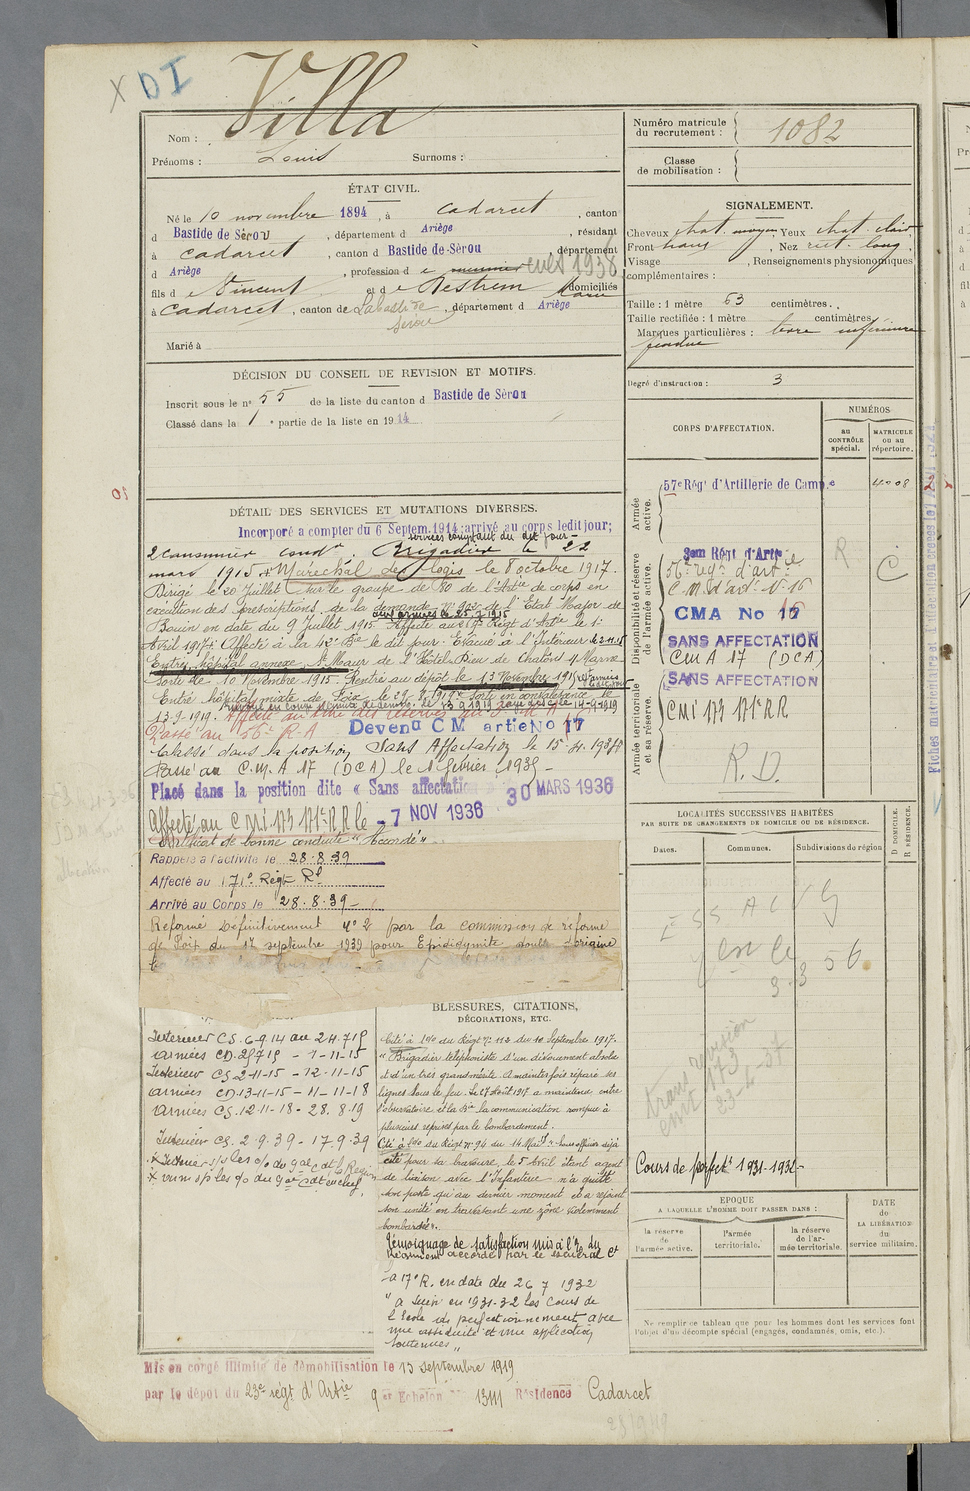 X DI
Nom : Villa
Prénoms : Louis Surnoms :
ÉTAT CIVIL.
Né le 10 novembre 1894, à Cadarcet, canton
d Bastide de Sérou, département d Ariège, résidant
à Cadarcet, canton d Bastide de-Sérou, département
d Ariège, profession d e meunier cult 1938
fils d e Vincent et d e Destrem Marie domiciliés
à Cadarcet, canton de Labastide de Sérou, département d Ariège
Marié à
DÉCISION DU CONSEIL DE REVISION ET MOTIFS.
Inscrit sous le nº 55 de la liste du canton d Bastide de Sérou
Classé dans la 1 e partie de la liste en 1914
DÉTAIL DES SERVICES ET MUTATIONS DIVERSES.
Incorporé a compter du 6 Septem. 1914; arrivé au corps ledit jour;
services comptant du dit jour -
2e canonnier condr. Brigadier le 22
mars 1915. Maréchal des logis le 8 octobre 1917.
Dirigé le 20 Juillet sur le groupe de 80 de l'Artie de corps en
exécution des prescriptions, de la demande nº 902 de l'Etat Major de
Bouin en date du 9 Juillet 1915. aux armées le 25.7.1915 Affecté au 21e Régt d'Artie le 1er
Avril 1917. Affecté à la 42e Bie le dit jour. Evacué à l'Intérieur le 2.11.15
Entré hôpital annexe St Maur de l'Hôtel-Dieu de Chalons s/Marne
Sorti le 10 Novembre 1915. Rentré au dépôt le 13 Novembre 1915
Entré hôpital mixte de Foix le 29.8.1919. Sorti en convalescence le
13-9-1919. Affecté au
Passé au 56e R.A. Devenu CM artie No 17
Classé dans la position Sans Affectation le 15-4-1938
Passé au C.M.A 17 (DCA) le 1 février 1935 -
Placé dans la position dite « Sans affectation » 30 MARS 1936
Affecté au CMI 173 171e RR le - 7 NOV 1936
Certificat de bonne conduite "Accordé"
Rappelé à l'activité le 28.8.39
Affecté au 171e Régt RL
Arrivé au Corps le 28.8.39-
Réformé Définitivement nº 2 par la commission de réforme
de Foix du 17 septembre 1939 pour Epididymite double d'origine
Intérieur CS. 6-9-14 au 24.7.15
Armées CD. 25.7.15 - 1-11-15
Intérieur CS 2-11-15 - 12-11-15
Armées CD.13-11-15 - 11-11-18
Armées CS. 12-11-18 - 28.8.19
Intérieur CS. 2.9.39 - 17.9.39
BLESSURES, CITATIONS,
DÉCORATIONS, ETC.
Cité à l'ordre du Régt nº 113 du 10 Septembre 1917.
"Brigadier téléphoniste d'un dévouement absolu
et d'un très grand mérite. A maintes fois réparé ses
lignes sous le feu. Le 27 Août 1917 a maintenu entre
l'observatoire et la Bie la communication rompue à
plusieurs reprises par le bombardement.
Cité à l'ordre du Régt nº 94 du 14 Mai "Sous officier déjà
cité pour sa bravoure, le 5 Avril étant agent
de liaison avec l'Infanterie n'a quitté
son poste qu'au dernier moment et a rejoint
son unité en traversant une zone violemment
bombardée".
Témoignage de satisfaction mis à l'O. du
Régiment accordé par le Général Ct
la 17e R. en date du 26 7 1932
"a suivi en 1931-32 les Cours de
l'Ecole de perfectionnement avec
une assiduité et une application
soutenues"
Mis en congé illimité de démobilisation le 13 septembre 1919
par le dépôt du 23e régt d'Artie 9 er Echelon Nº 13111 Résidence Cadarcet
Numéro matricule
du recrutement : 1082
Classe
de mobilisation :
SIGNALEMENT.
Cheveux chat. moyen, Yeux chat. clair
Front haut, Nez rect. long,
Visage , Renseignements physionomiques
complémentaires :
Taille : 1 mètre 63 centimètres.
Taille rectifiée : 1 mètre centimètres.
Marques particulières : lèvre inférieure
fendue
Degré d'instruction : 3
CORPS D'AFFECTATION.
NUMÉROS
au CONTRÔLE spécial.
MATRICULE ou au répertoire.
Armée active.
57e Rég' d'Artillerie de Camp.e 4008
Disponibilité et réserve de l'armée active.
56e régt d'artie R C
C.M. d'art. Nº 16
CMA No 16
SANS AFFECTATION
CMA 17 (DCA)
SANS AFFECTATION
Armée territoriale et sa réserve.
CMI 173 171e RR
R.D.
LOCALITÉS SUCCESSIVES HABITÉES
PAR SUITE DE CHANGEMENTS DE DOMICILE OU DE RÉSIDENCE.
Dates.
Communes.
Subdivisions de région
D DOMICILE.
R RÉSIDENCE.
Cours de perfect. 1931-1932-
EPOQUE
A LAQUELLE L'HOMME DOIT PASSER DANS :
la réserve de l'armée active.
l'armée territoriale.
la réserve de l'armée territoriale.
DATE de LA LIBÉRATION du service militaire.
Ne remplir ce tableau que pour les hommes dont les services font
l'objet d'un décompte spécial (engagés, condamnés, omis, etc.).